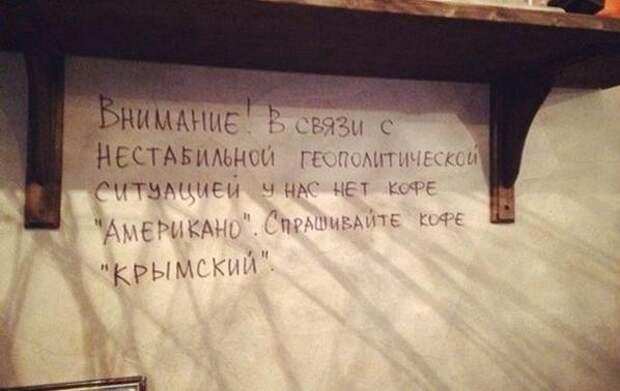 Внимание! В связи с
нестабильной геополитической
ситуацией у нас нет кофе
"Американо". Спрашивайте кофе
"Крымский".